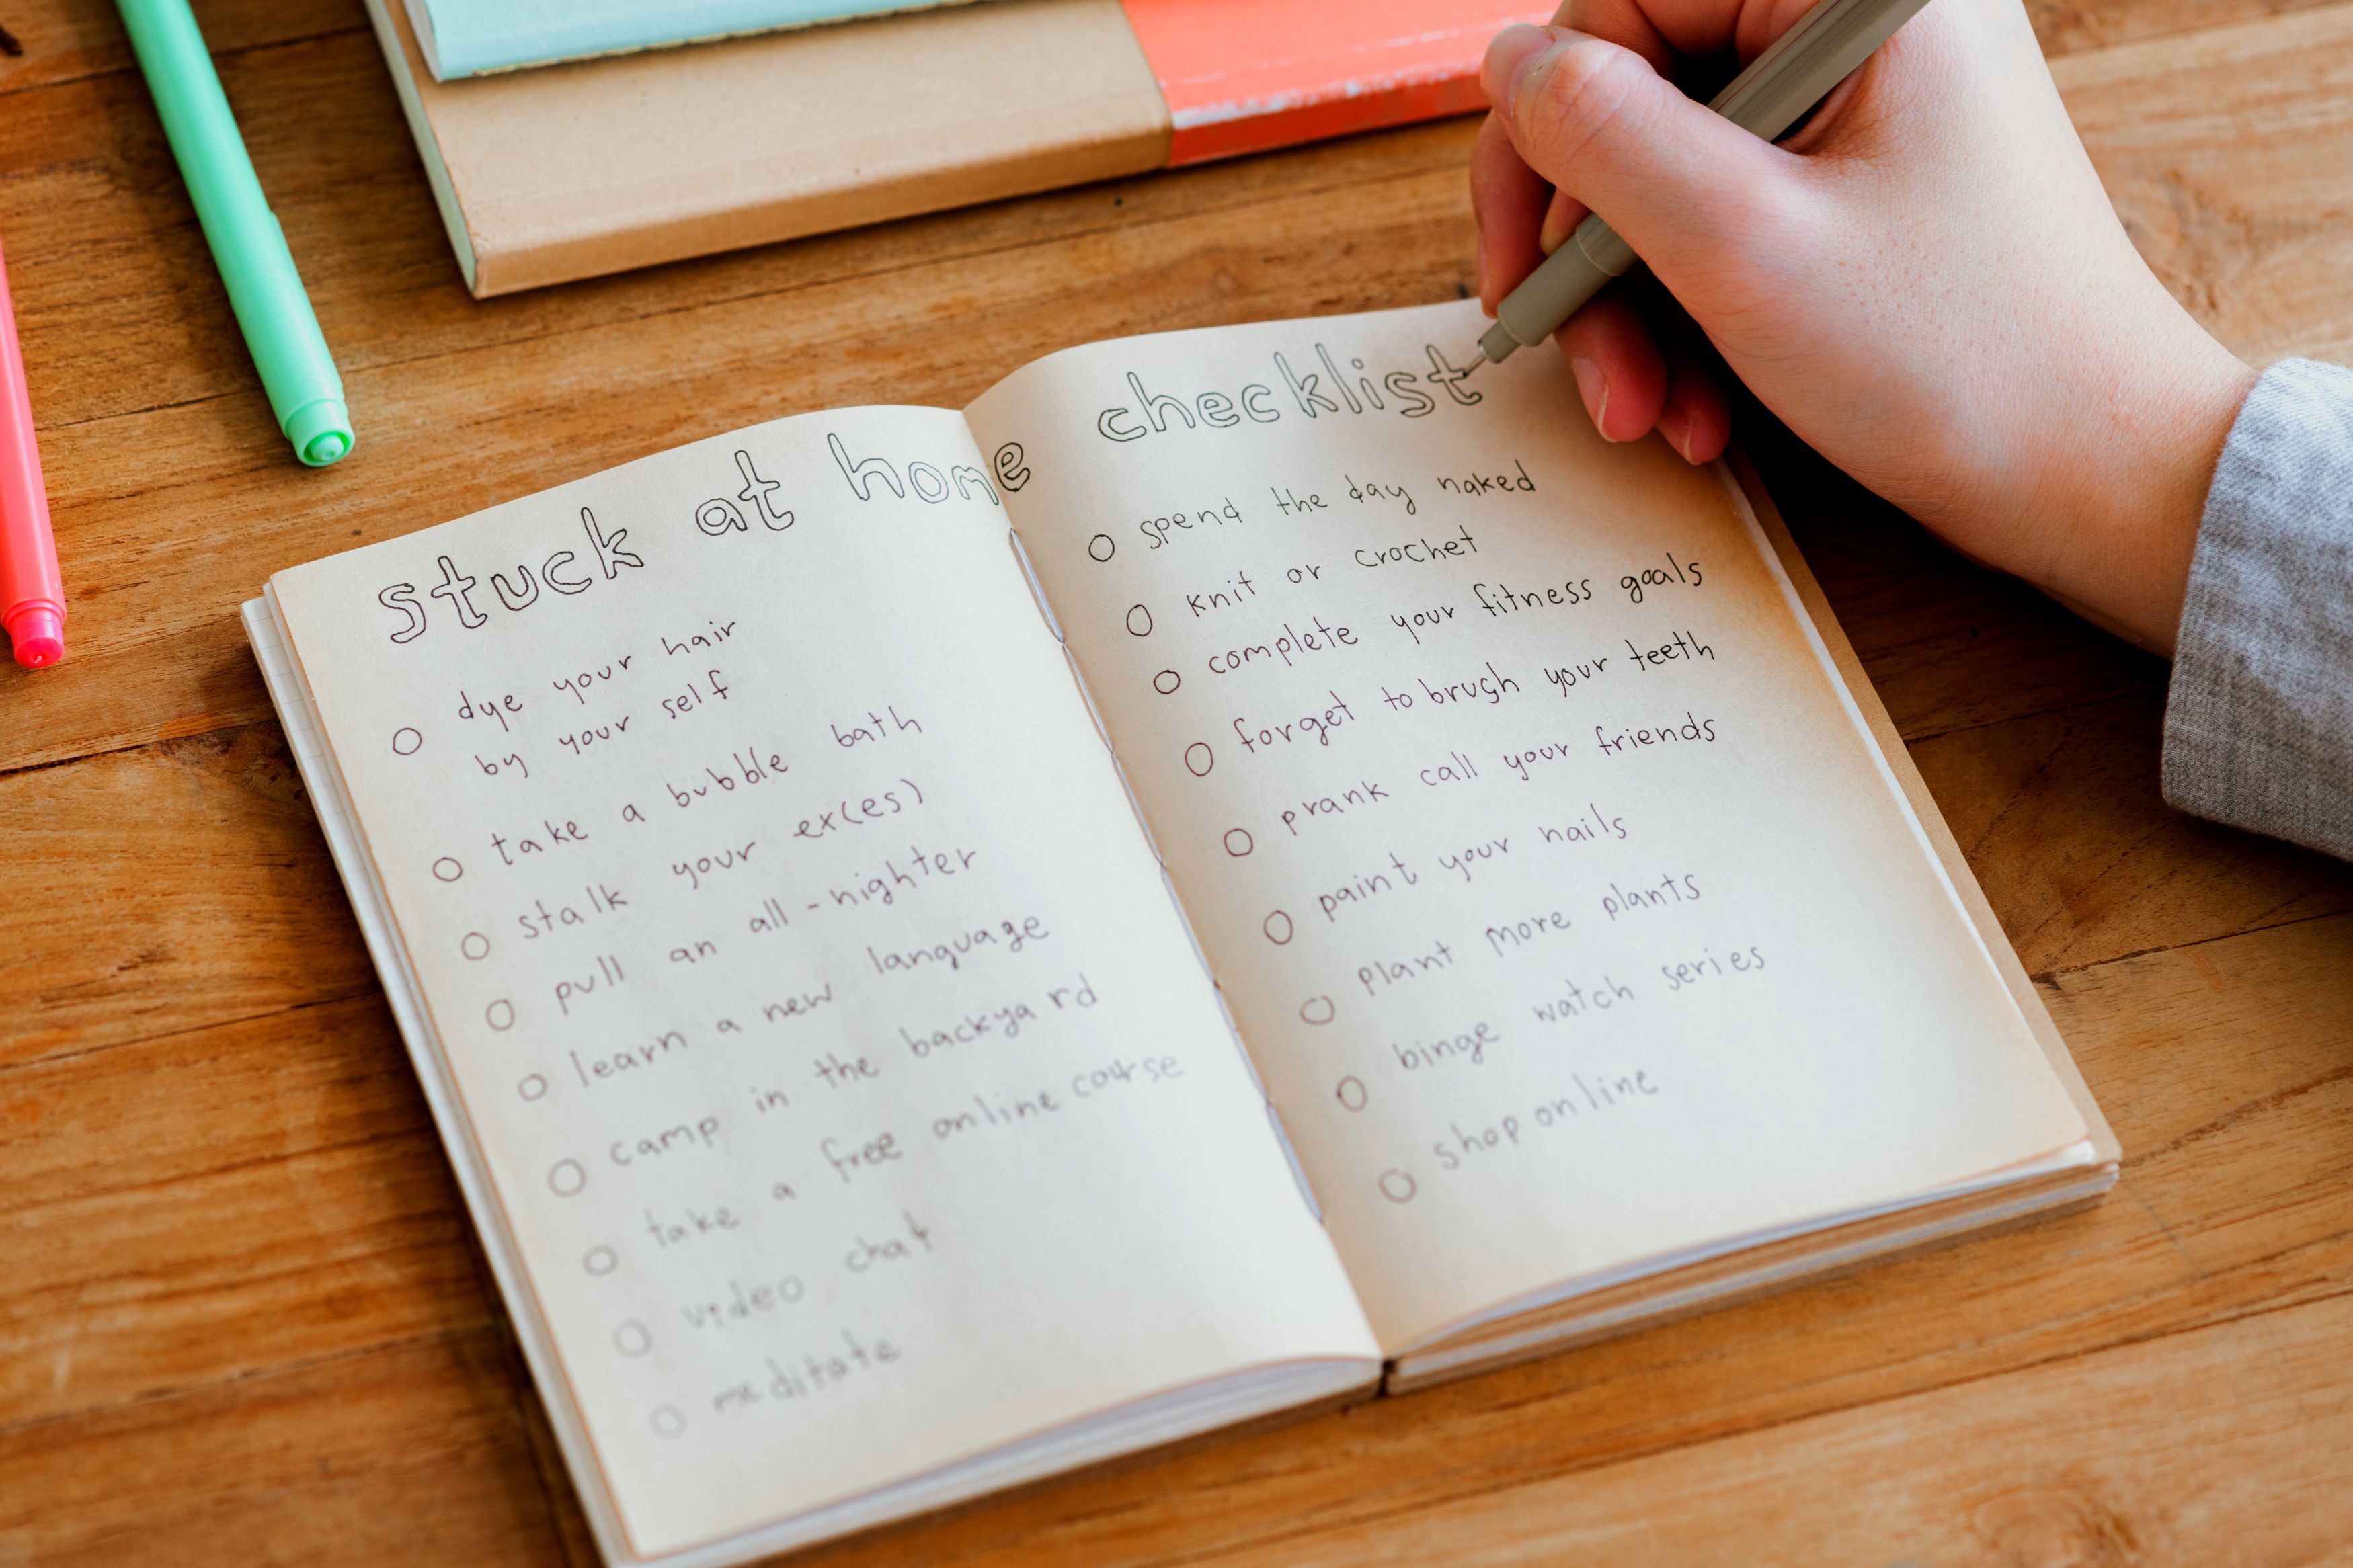 stuck at home checklist
dye your hair
by your self
take a bubble bath
stalk your ex(es)
pull an all-nighter
learn a new language
camp in the backyard
take a free online course
video chat
meditate
spend the day naked
knit or crochet
complete your fitness goals
forget to brush your teeth
prank call your friends
paint your nails
plant more plants
binge watch series
shop online